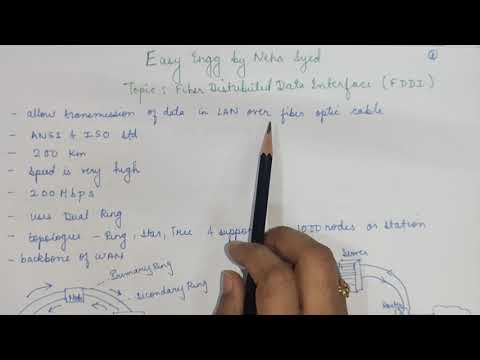 Easy Engg by Neha Syed
Topic: Fiber Distributed Data Interface (FDDI)
- allow transmission of data in LAN over fiber optic cable
- ANSI & ISO Std
- 200 Km
- Speed is very high
- 200 Mbps
- uses Dual Ring
- topologue - Ring, Star, Tree & support 1000 nodes or station
- backbone of WAN
Primary Ring
Secondary Ring
Server
Router